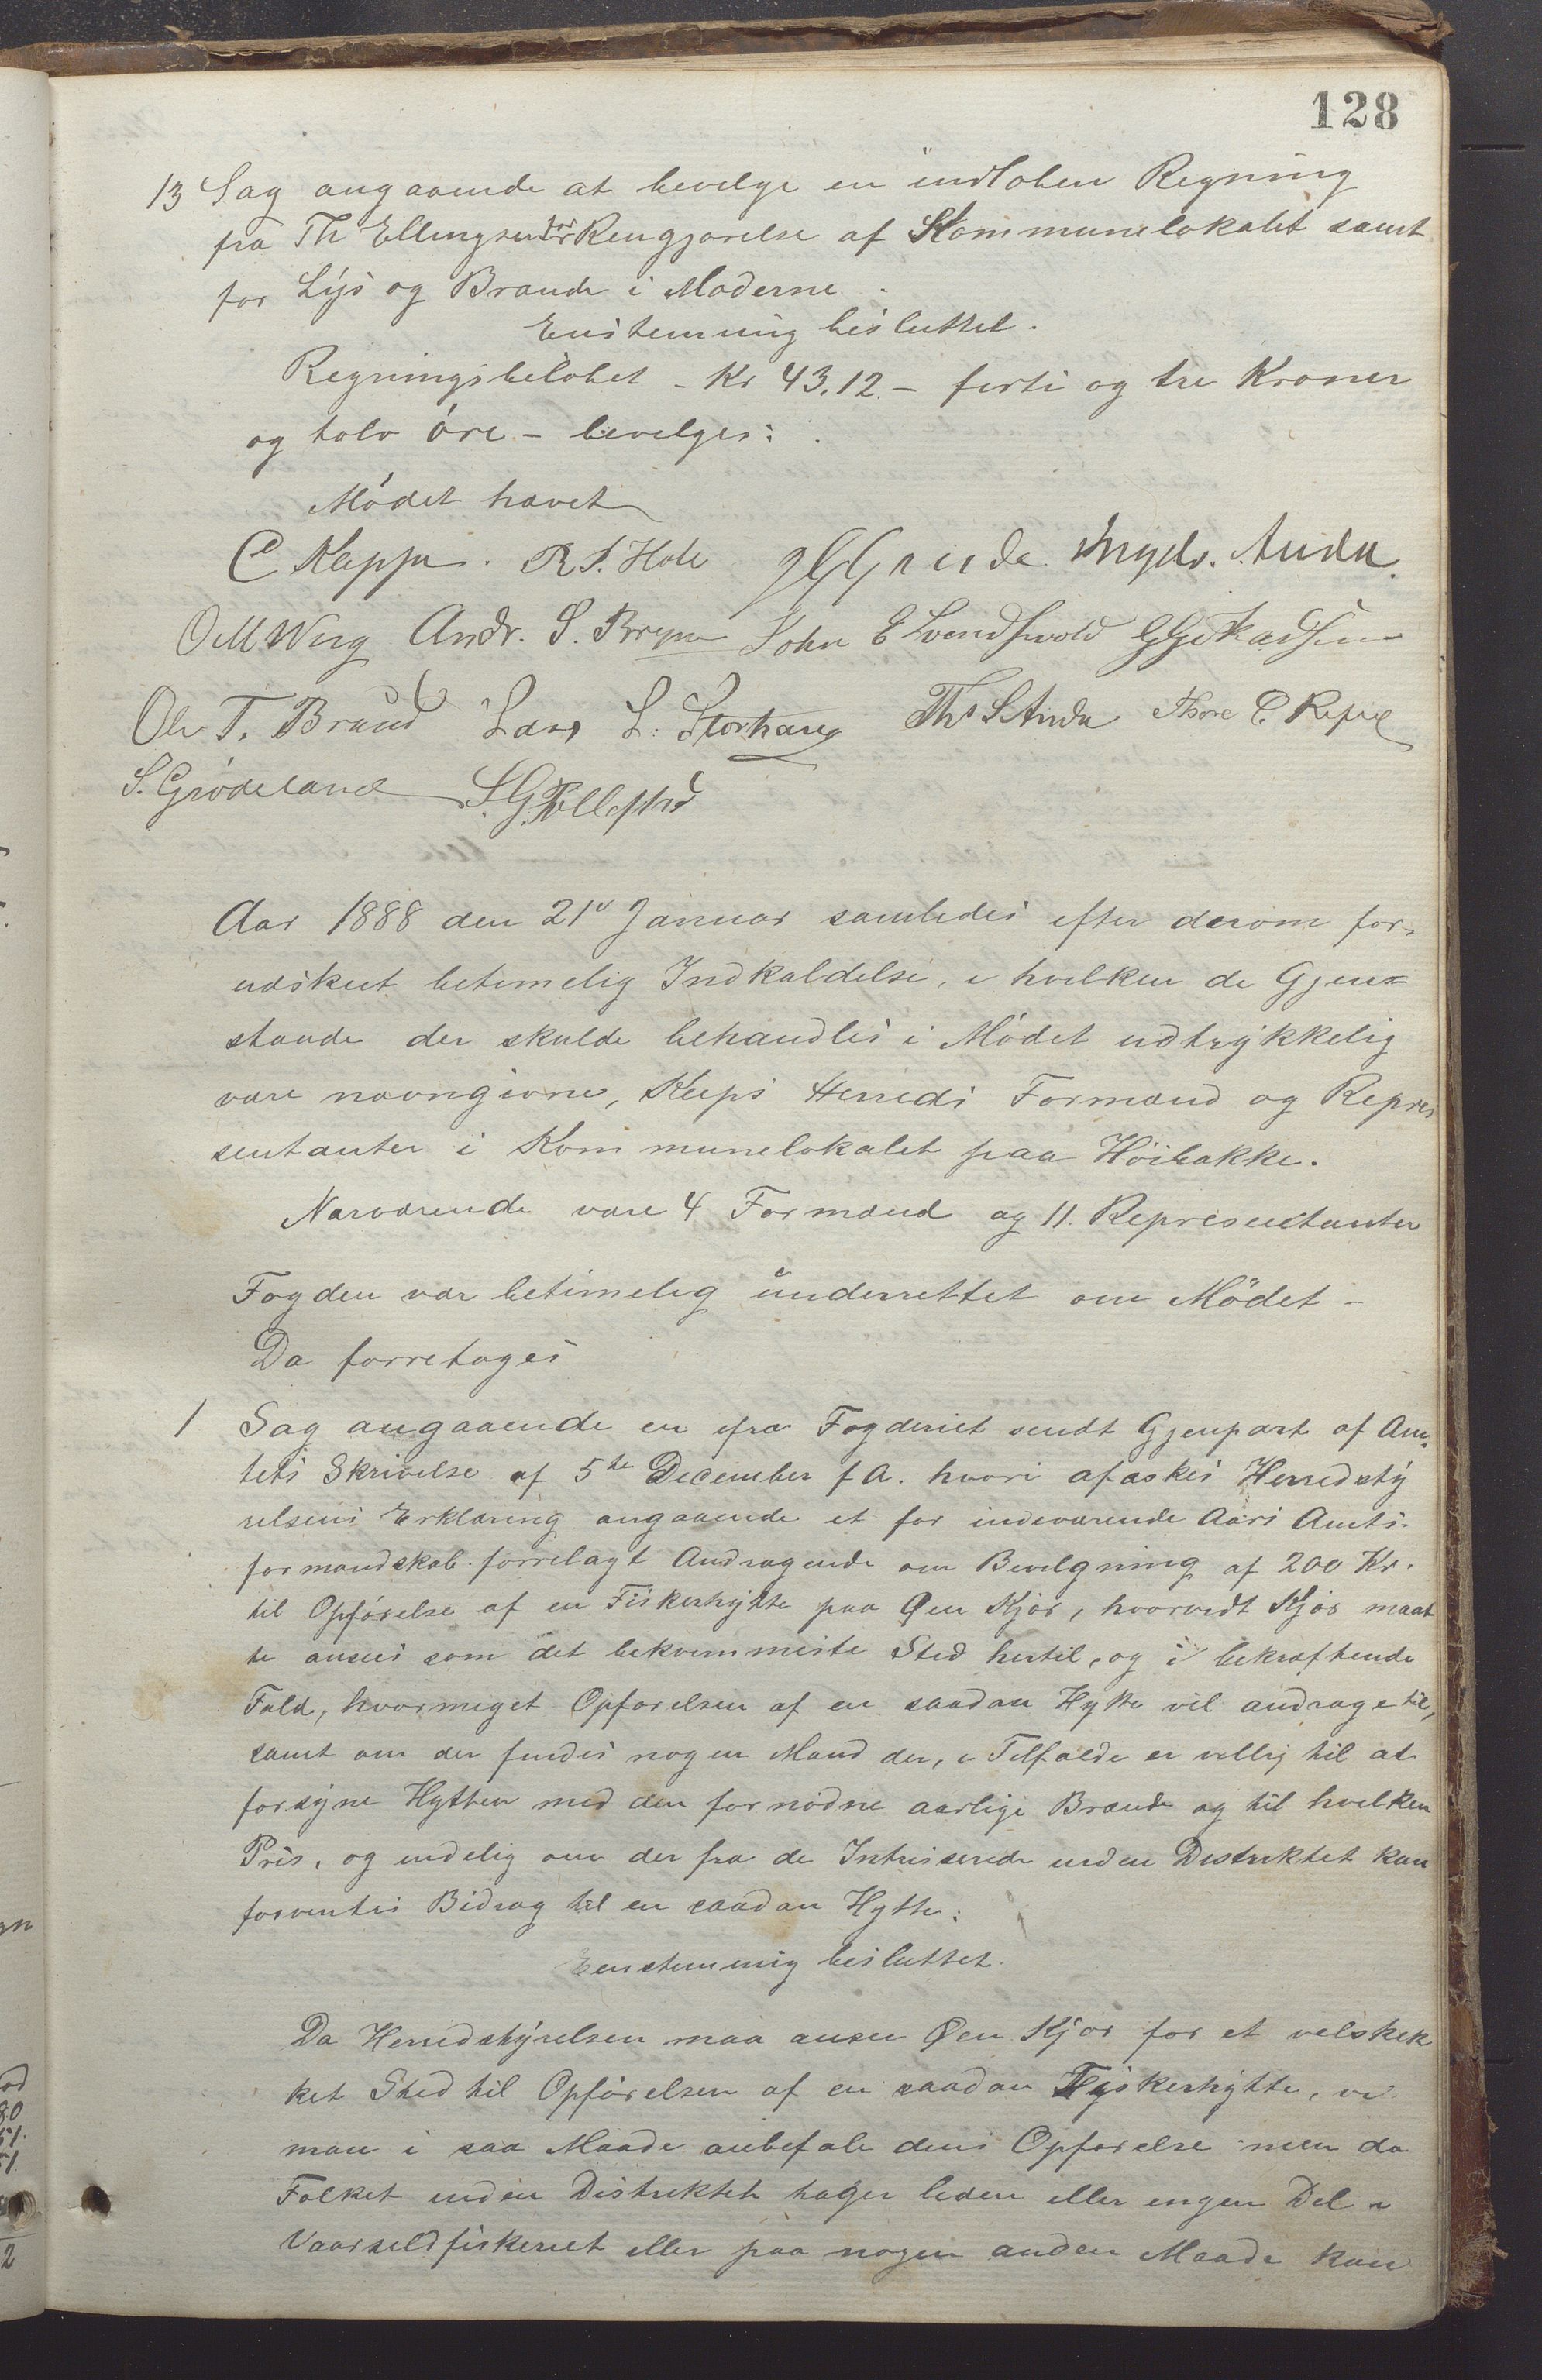 128
13 Sag angaaende at bevilge en indløben Regning
fra Th Ellingsen for Rengjørelse af Kommunelokalet samt
for Lys og Brænde i Møderne.
Enstemmig besluttet.
Regningsbeløbet - Kr 43,12. - firti og tre Kroner
og tolv öre - bevilges:
Mödet hævet
C Kleppe. R. S. Hole Grude Ingebr. Anda.
O M Wiig Andr. S. Bryne John E Svendsvold
Ole T. Braud Lars L. Storhaug Ths S Anda Thore C. Repie
S. Grödeland S. G. Tollefstad
Aar 1888 den 21de Januar samledes efter derom for-
udskeet betimelig Indkaldelse, i hvilken de Gjen=
stande der skulde behandles i Mödet udtrykkelig
vare navngivne, Kleps Herreds Formænd og Repræ
sentanter i Kommunelokalet paa Höibakke.
Nærværende vare 4 Formænd og 11. Repræsentanter
Fogden var betimelig underrettet om Mödet -
Da forretoges
1 Sag angaaende en fra Fogderiet sendt Gjenpart af Am-
tets Skrivelse af 5te December f A. hvori afæskes Herredsty
relsens Erklæring angaaende et for indeværende Aars Amts-
formandskab forrelagt Andragende om Bevilgning af 200 Kr.
til Opförelse af en Fiskerhytte paa Øen Kjör, hvorvidt Kjör maat
te ansees som det bekvemmeste Sted hertil, og i bekræftende
Fald, hvormeget Opförelsen af en saadan Hytte vil andrage til,
samt om der findes nogen Mand der, i Tilfælde er villig til at
forsyne Hytten med den fornødne aarlige Brænde og til hvilken
Pris, og endelig om der fra de Intriserede inden Distriktet kan
forventes Bidrag til en saadan Hytte:
Eenstemmig besluttet.
Da Herredstyrelsen maa ansee Øen Kjör for et velskik
ket Sted til Opförelsen af en saadan Fiskerhytte, vil
man i saa Maade anbefale dens Opförelse men da
Folket inden Distriktet tager liden eller ingen Del i
Vaarsildfiskeriet eller paa nogen anden Maade kan